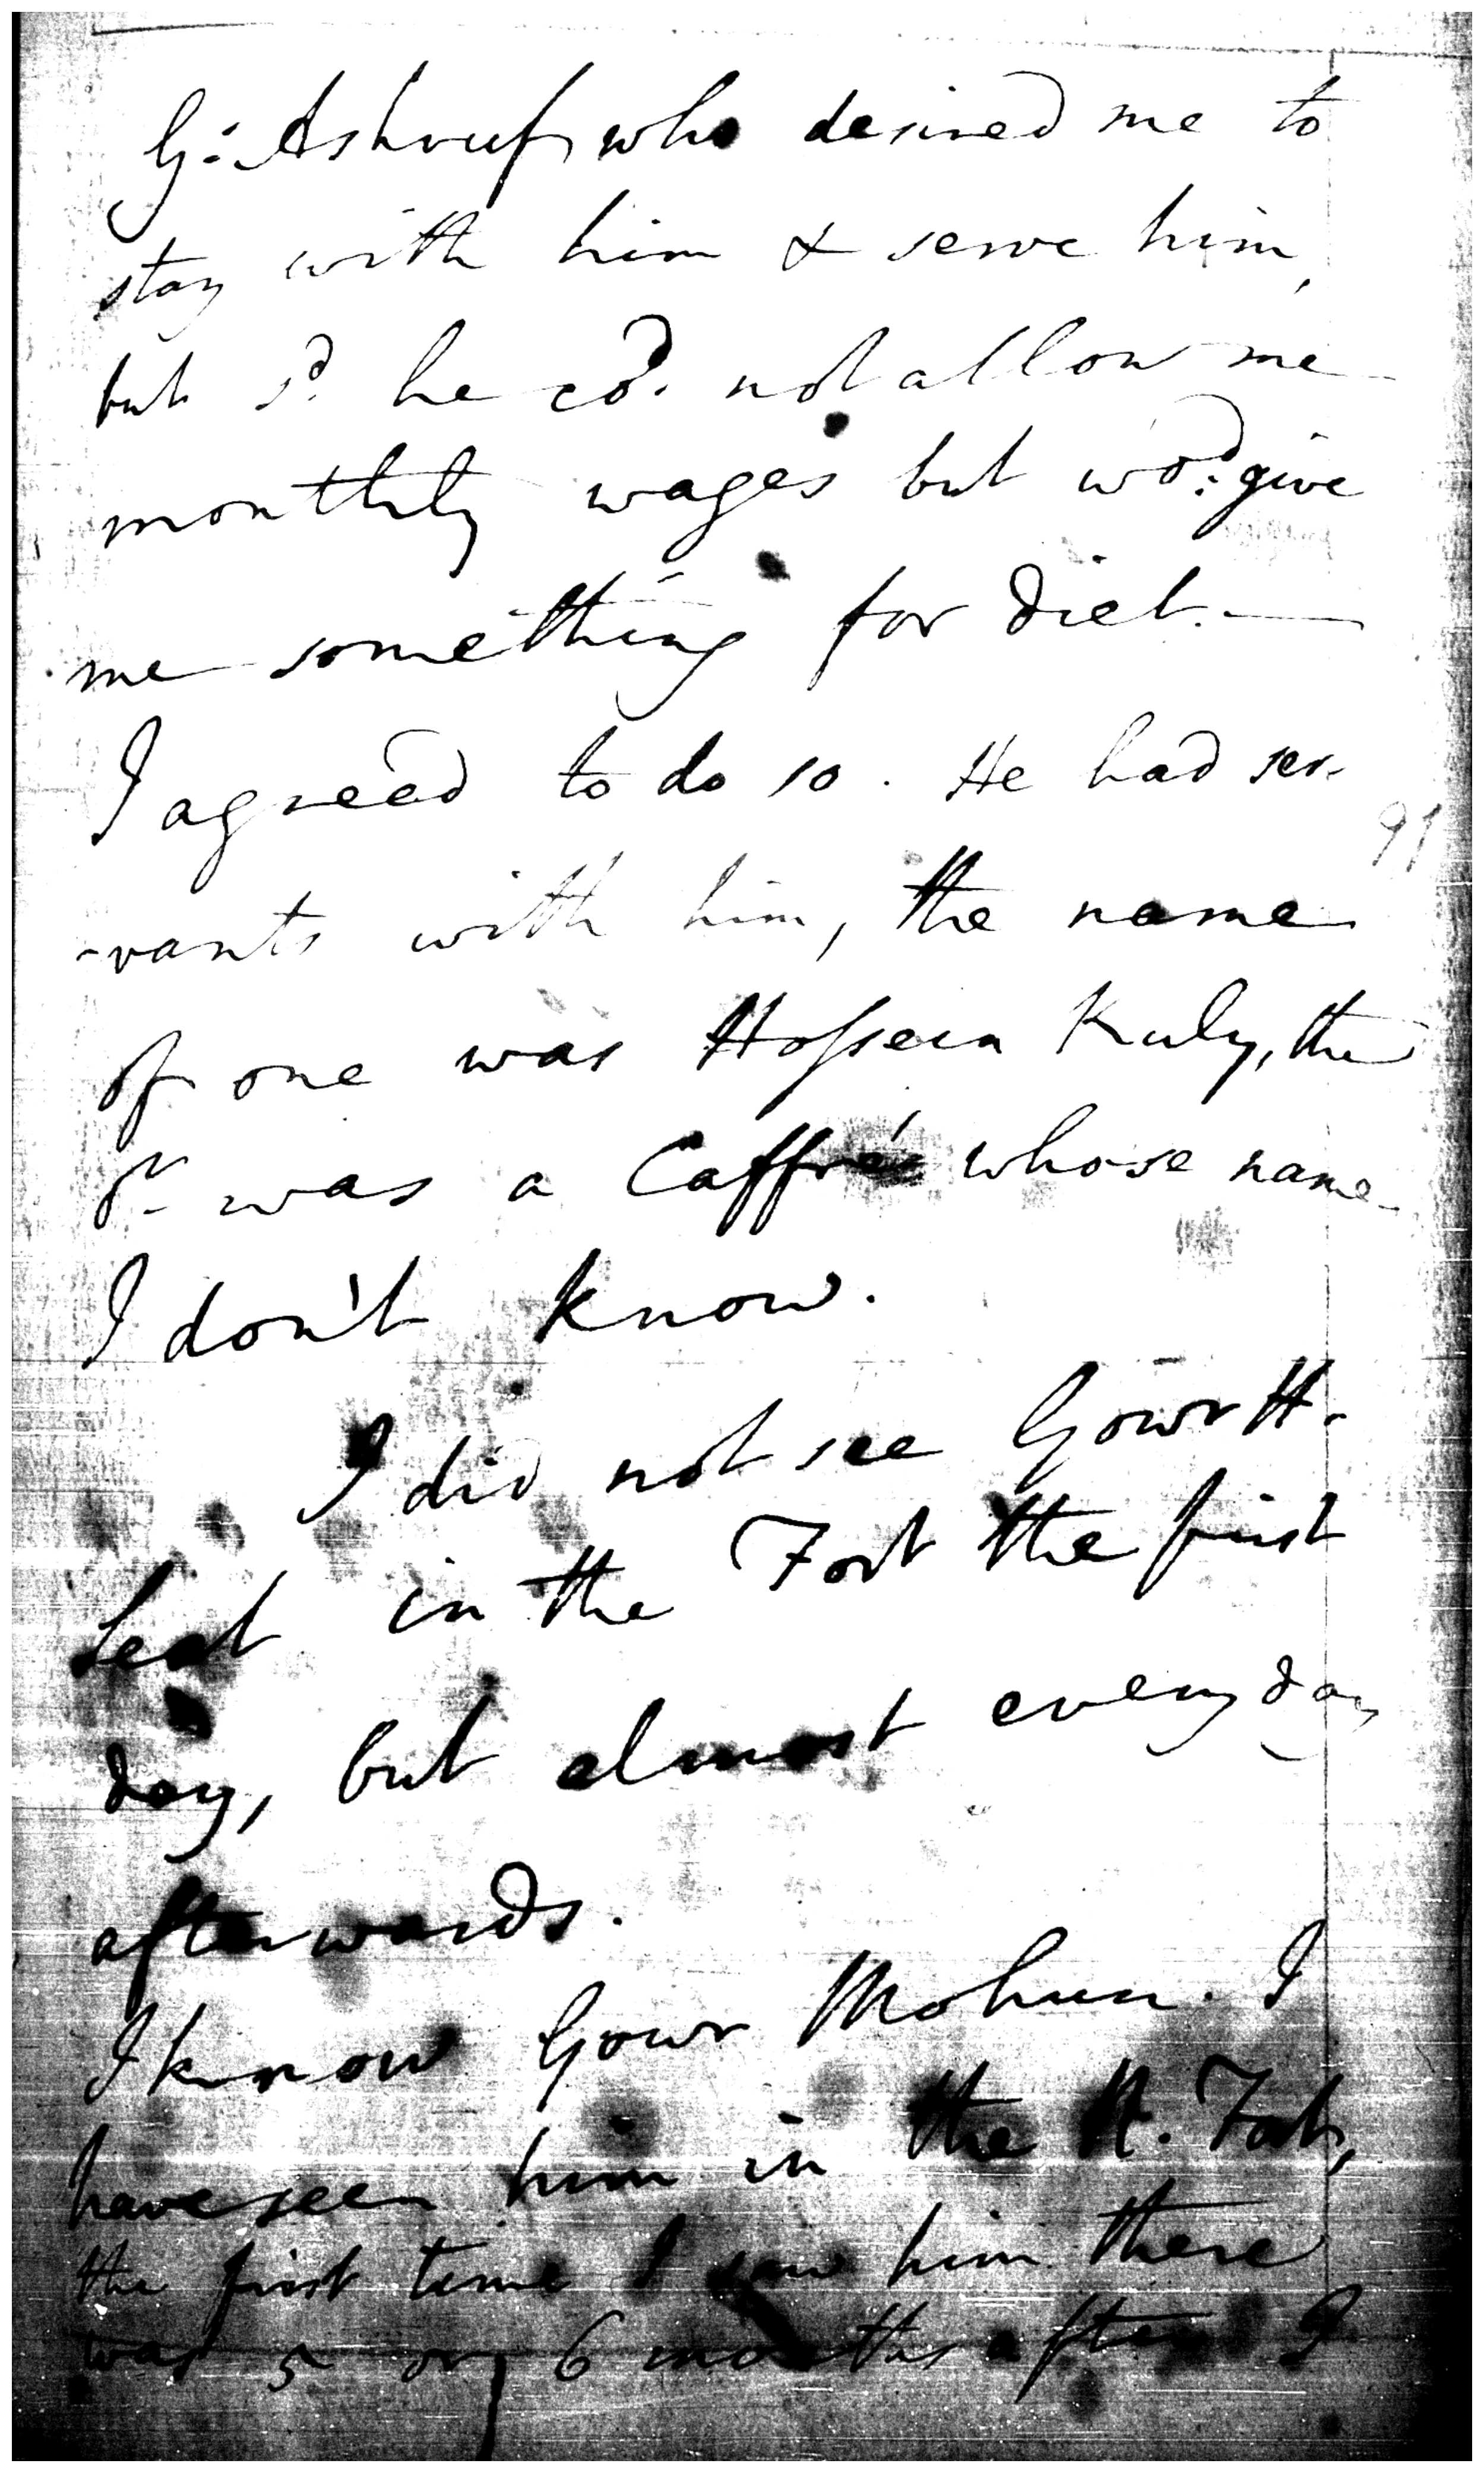 G: Ashruf who desired me to
stay with him & serve him,
but sd. he cod. not allow me
monthly wages but wod: give
me something for diet. —
I agreed to do so. He had ser-
91
-vants with him, the name
of one was Hossein Kuly, the
or was a Caffre whose name
I don't know.
I did not see Gowr H.
Seat in the Fort the first
day, but almost every day
afterwards.
I know Gowr Mohun. I
have seen him in the N. Fort,
the first time I saw him there
was 5 or 6 months after I